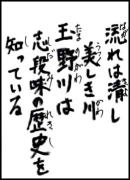 流れは清し
美しき川
玉野川は
志段味の歴史を
知っている